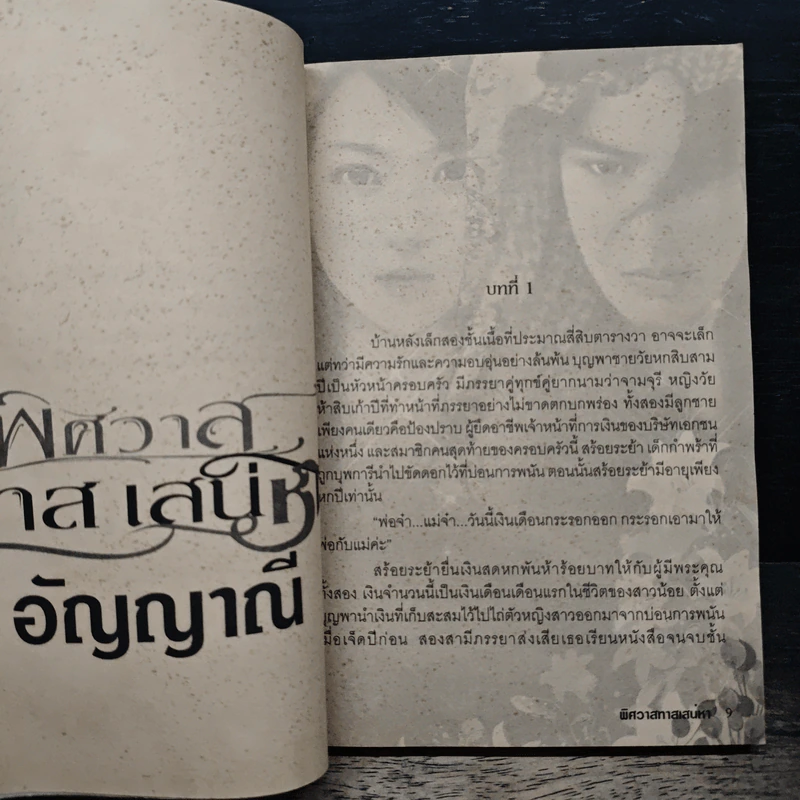 พิศวาส
าส เสน่ห
อัญญาณี
บทที่ 1
บ้านหลังเล็กสองชั้นเนื้อที่ประมาณสี่สิบตารางวา อาจจะเล็ก
แต่ทว่ามีความรักและความอบอุ่นอย่างล้นพ้น บุญพาชายวัยหกสิบสาม
ปีเป็นหัวหน้าครอบครัว มีภรรยาคู่ทุกข์คู่ยากนามว่าจามจุรี หญิงวัย
ห้าสิบเก้าปีที่ทำหน้าที่ภรรยาอย่างไม่ขาดตกบกพร่อง ทั้งสองมีลูกชาย
เพียงคนเดียวคือป้องปราบ ผู้ยึดอาชีพเจ้าหน้าที่การเงินของบริษัทเอกชน
แห่งหนึ่ง และสมาชิกคนสุดท้ายของครอบครัวนี้ สร้อยระย้า เด็กกำพร้าที่
ถูกบุพการีนำไปขัดดอกไว้ที่บ่อนการพนัน ตอนนั้นสร้อยระย้ามีอายุเพียง
หกปีเท่านั้น
“พ่อจ๋า...แม่จ๋า...วันนี้เงินเดือนกระรอกออก กระรอกเอามาให้
พ่อกับแม่ค่ะ”
สร้อยระย้ายื่นเงินสดหกพันห้าร้อยบาทให้กับผู้มีพระคุณ
ทั้งสอง เงินจำนวนนี้เป็นเงินเดือนเดือนแรกในชีวิตของสาวน้อย ตั้งแต่
บุญพานำเงินที่เก็บสะสมไว้ไปไถ่ตัวหญิงสาวออกมาจากบ่อนการพนัน
เมื่อเจ็ดปีก่อน สองสามีภรรยาส่งเสียเธอเรียนหนังสือจนจบชั้น
พิศวาสทาสเสน่หา 9